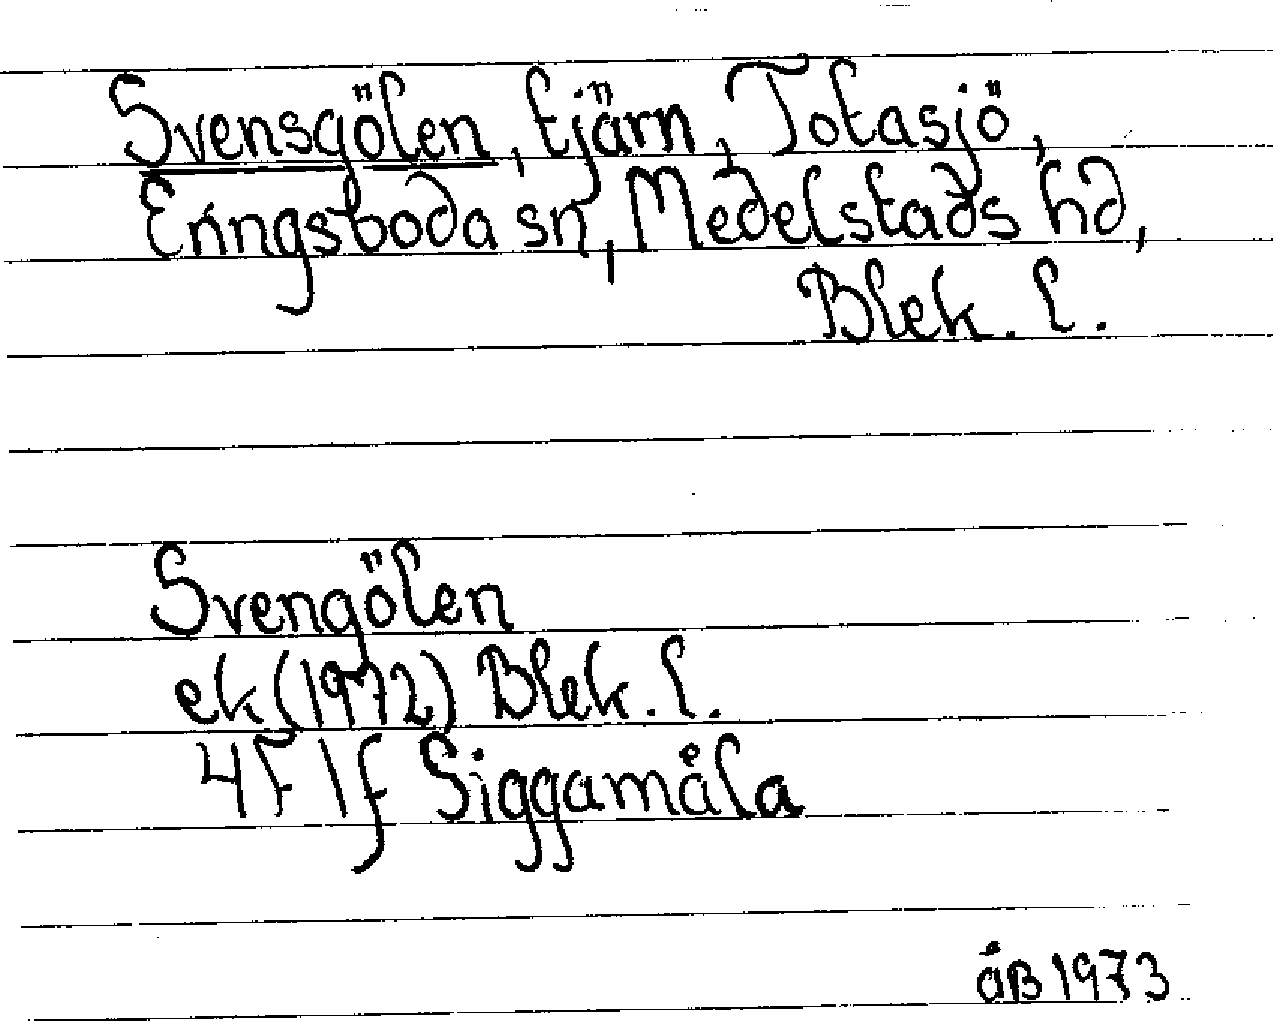 Svensgölen, tjärn, Totasjö,
Eringsboda sn, Medelstads hd,
Blek. l.
Svengölen
ek (1972) Blek. l.
4F 1f Siggamåla
åB 1973